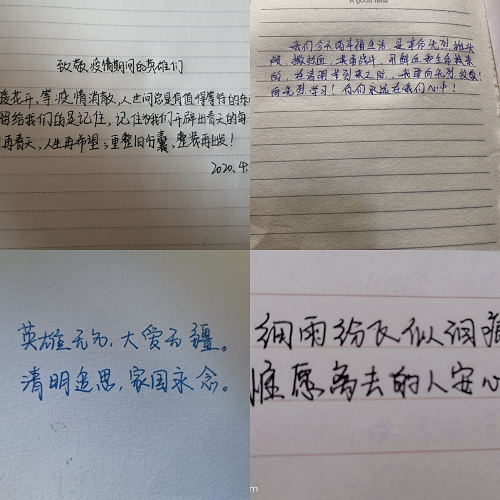 致敬疫情期间的英雄们
暖花开,等疫情消散,人世间总是有值得等待的
将给我们的是记住,记住为我们开辟出春天的每
再看天,人生再希望;重整旧行囊,整装再出发!
2020.4.
A good time
我们今天的幸福生活,是革命先烈抛头
颅,洒热血,英勇战斗,用鲜血和生命换来
的,在清明节到来之际,我要向先烈致敬!
向先烈学习!你们永远在我们心中!
英雄无名,大爱无疆。
清明追思,家国永念。
细雨纷飞似泪痕
惟愿离去的人安心
m